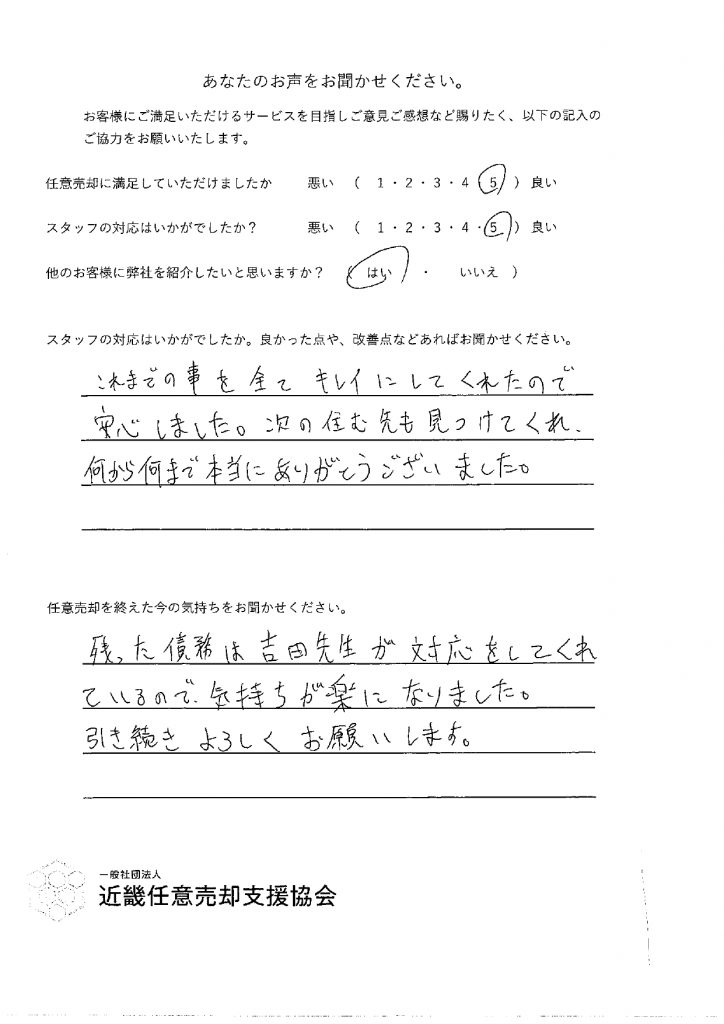 あなたのお声をお聞かせください。
お客様にご満足いただけるサービスを目指しご意見ご感想など賜りたく、以下の記入の
ご協力をお願いいたします。
任意売却に満足していただけましたか 悪い （ 1・2・3・4・5 ）良い
スタッフの対応はいかがでしたか？ 悪い （ 1・2・3・4・5 ）良い
他のお客様に弊社を紹介したいと思いますか？ （ はい ・ いいえ ）
スタッフの対応はいかがでしたか。良かった点や、改善点などあればお聞かせください。
これまでの事を全てキレイにしてくれたので
安心しました。次の住む先も見つけてくれ、
何から何まで本当にありがとうございました。
任意売却を終えた今の気持ちをお聞かせください。
残った債務は吉田先生が対応をしてくれ
ているので、気持ちが楽になりました。
引き続きよろしくお願いします。
一般社団法人
近畿任意売却支援協会